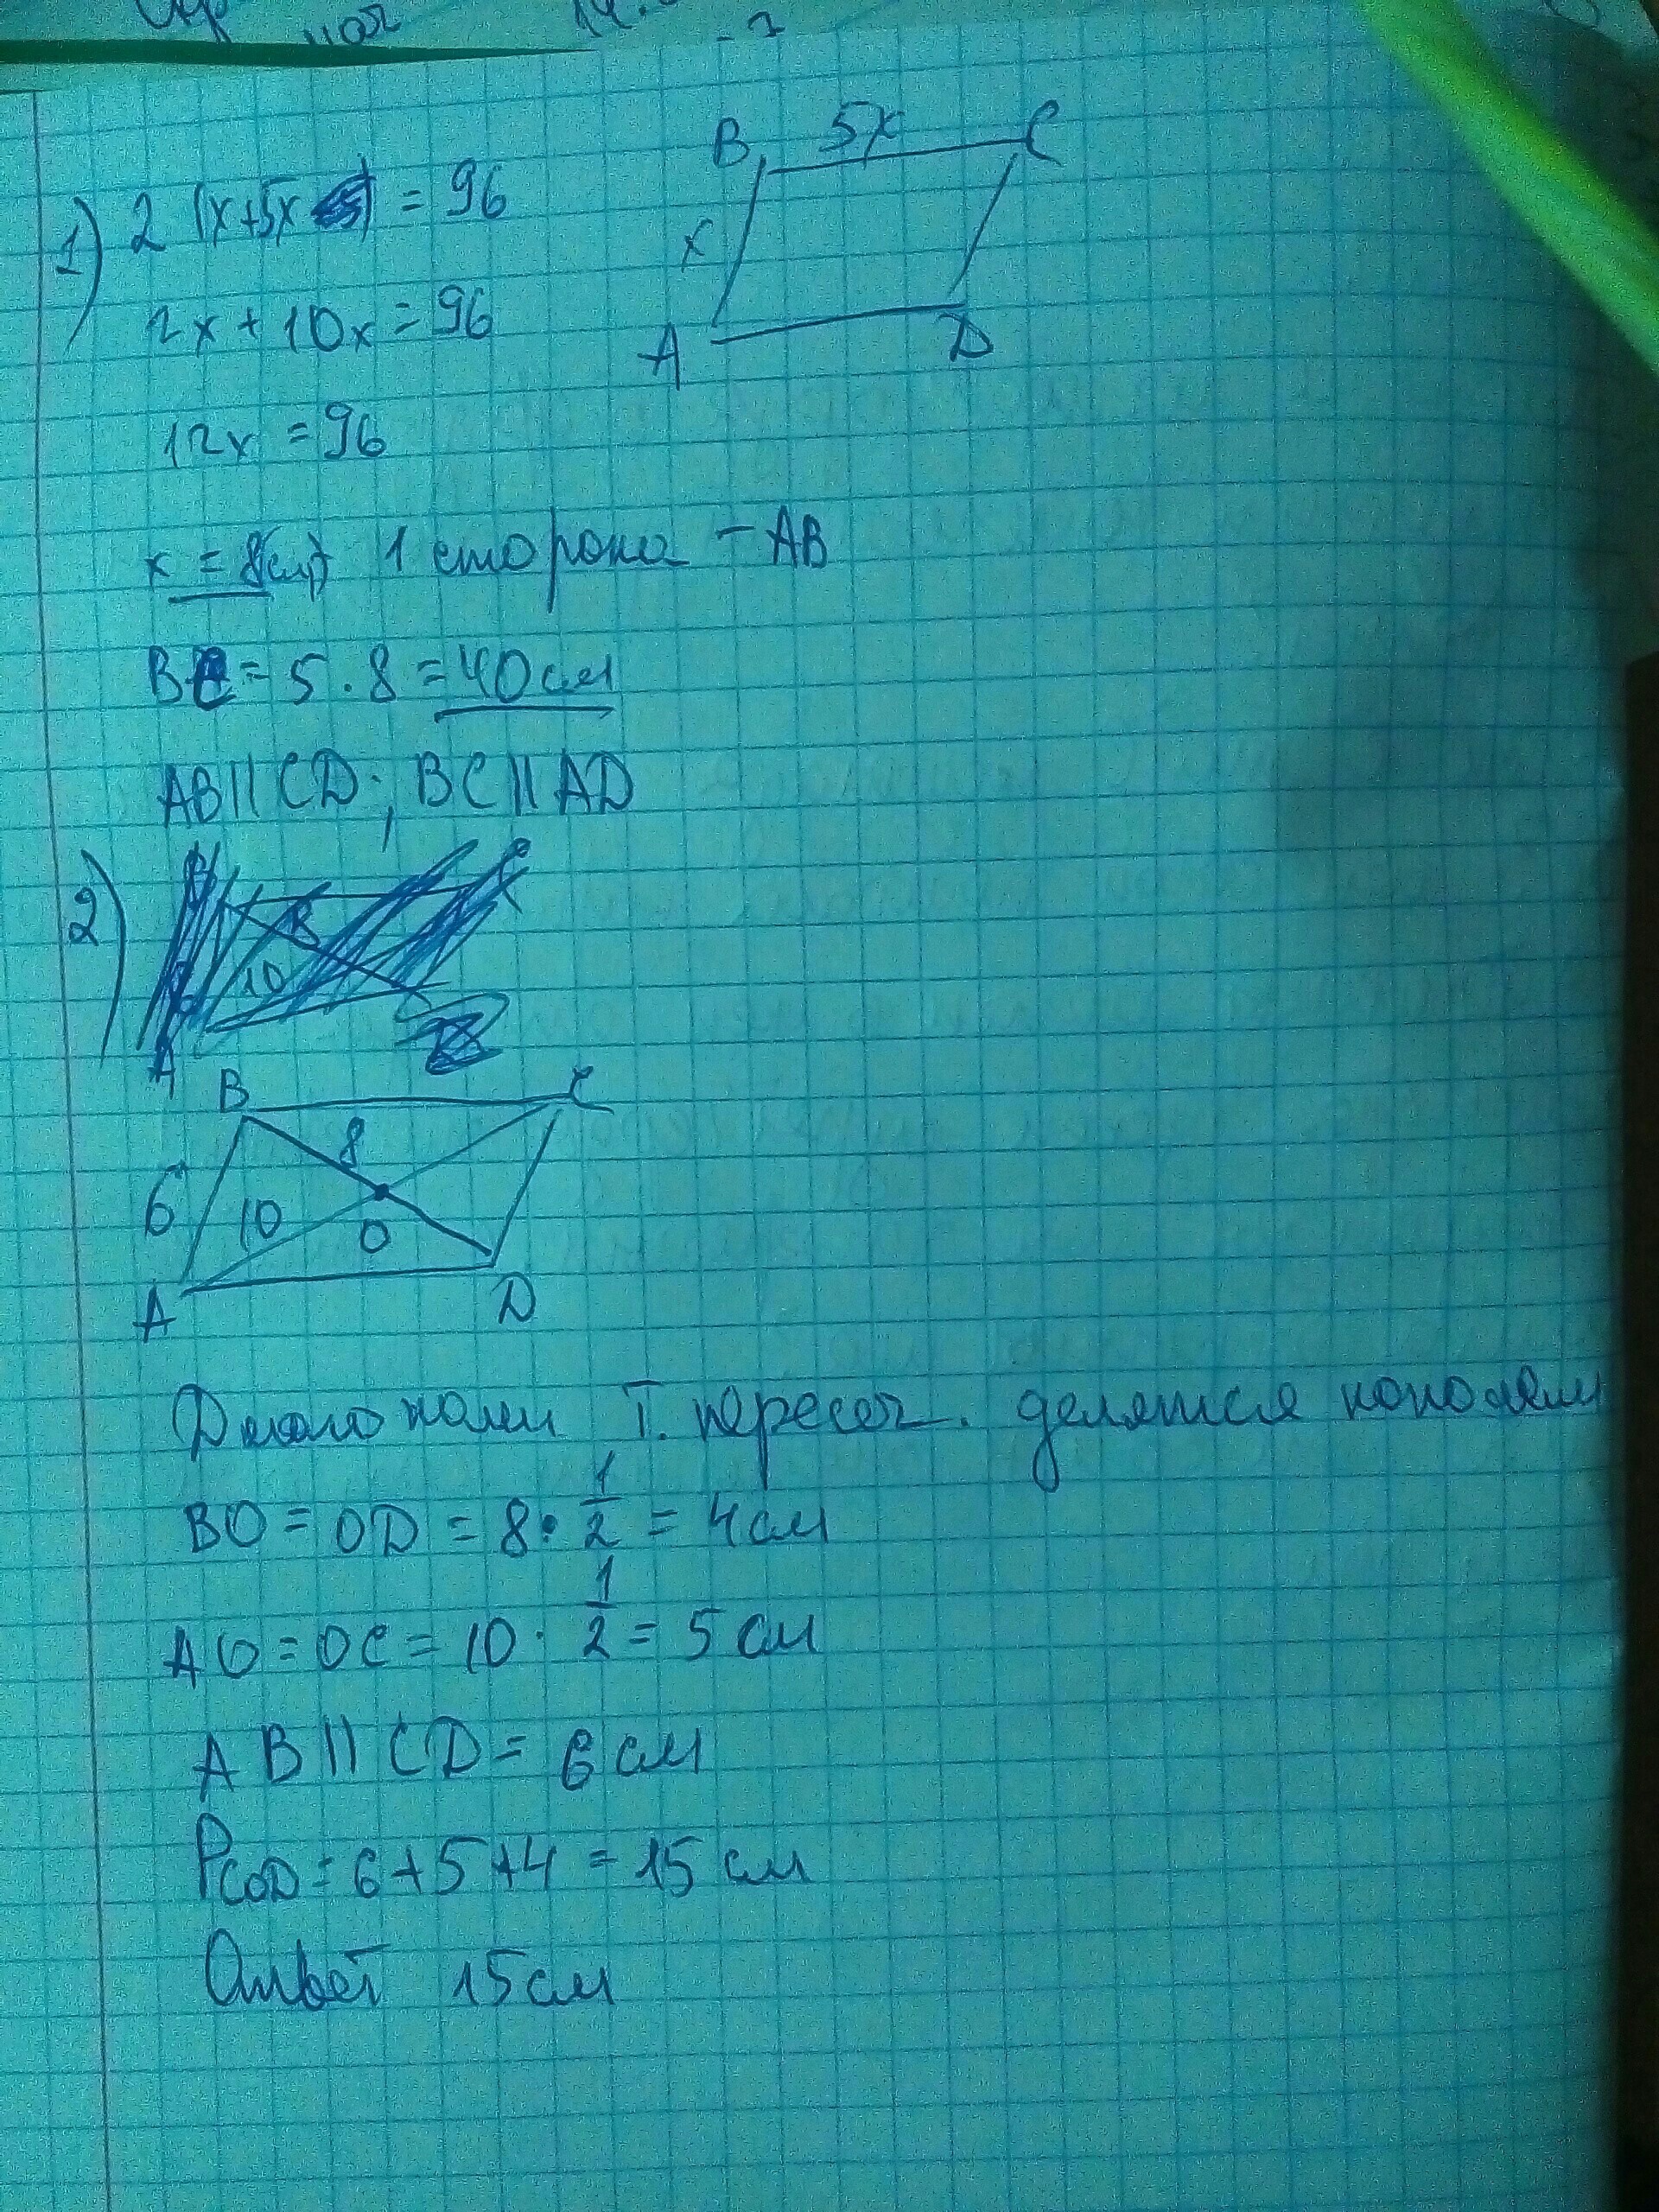 ная
B 5x C
1) 2 (x+5x) = 96
x
2x + 10x = 96
A D
12x = 96
x = 8(см) 1 сторона - AB
BC = 5 · 8 = 40см
AB || CD; BC || AD
2)
B C
8
6 10
O
A D
т. пересеч. делятся пополам
BO = OD = 8 · 1/2 = 4см
AO = OC = 10 · 1/2 = 5 см
AB || CD = 6 см
PCOD = 6+5+4 = 15 см
Ответ 15см